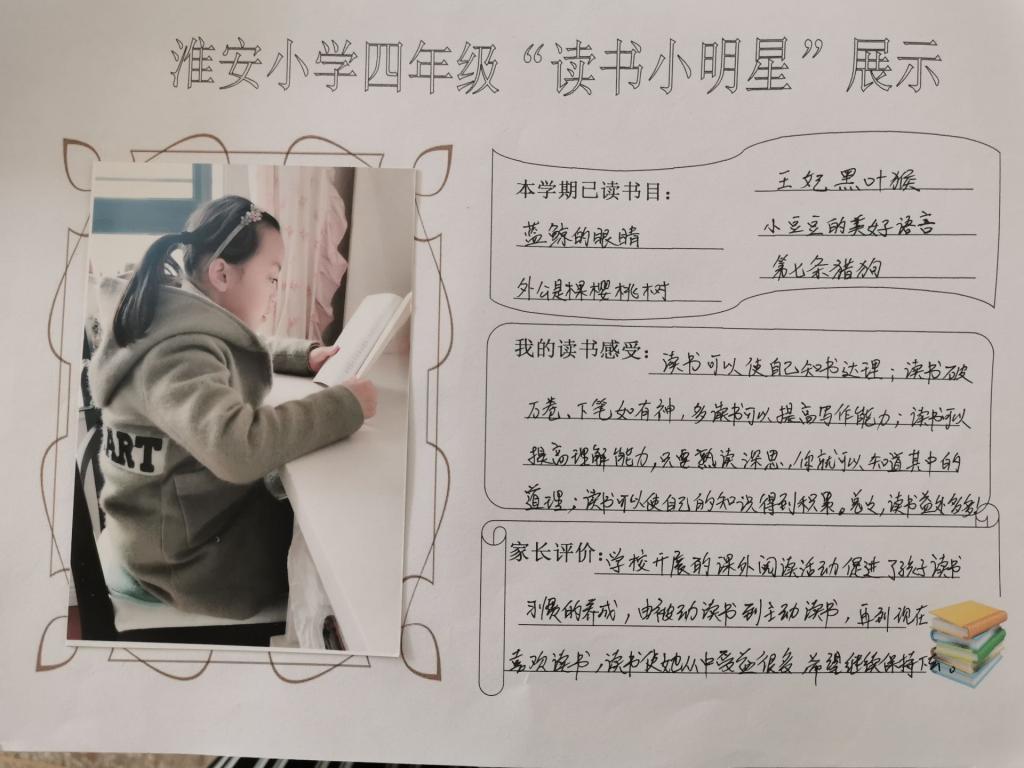 淮安小学四年级“读书小明星”展示
本学期已读书目：
王妃黑叶猴
蓝鲸的眼睛
小豆豆的美好语言
外公是棵樱桃树
第七条猎狗
我的读书感受：读书可以使自己知书达理；读书破
万卷、下笔如有神，多读书可以提高写作能力；读书可以
提高理解能力，只要熟读深思，你就可以知道其中的
道理；读书可以使自己的知识得到积累。总之，读书益处多多
家长评价：学校开展的课外阅读活动促进了孩子读书
习惯的养成，由被动读书到主动读书，再到现在
喜欢读书，读书使她从中受益很多，希望继续保持下去。
ART